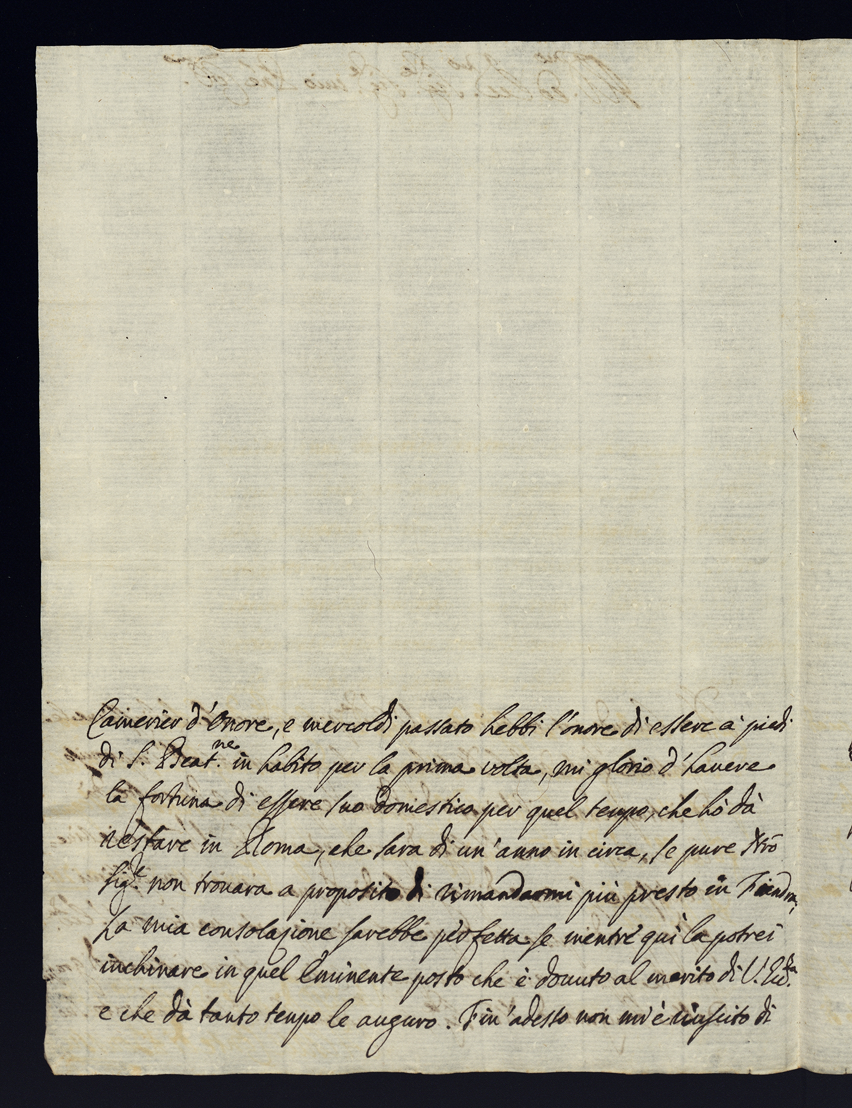 Camerier d'Onore, e mercoldi passato hebbi l'onore di essere a' piedi
di S. Beat.ne in habito per la prima volta, mi glorio d'havere
la fortuna di essere suo domestico per quel tempo, che hò dà
restare in Roma, che sara di un'anno in circa, se pure Nrõ
Sig.e non trouara a proposito di rimandarmi più presto in Fiandra,
La mia consolazione sarebbe perfetta se mentre qui la potrei
inchinare in quel Eminente posto che è douuto al merito di V. Ecc.za
e che dà tanto tempo le auguro. Fin'adesso non mi è riuscito di